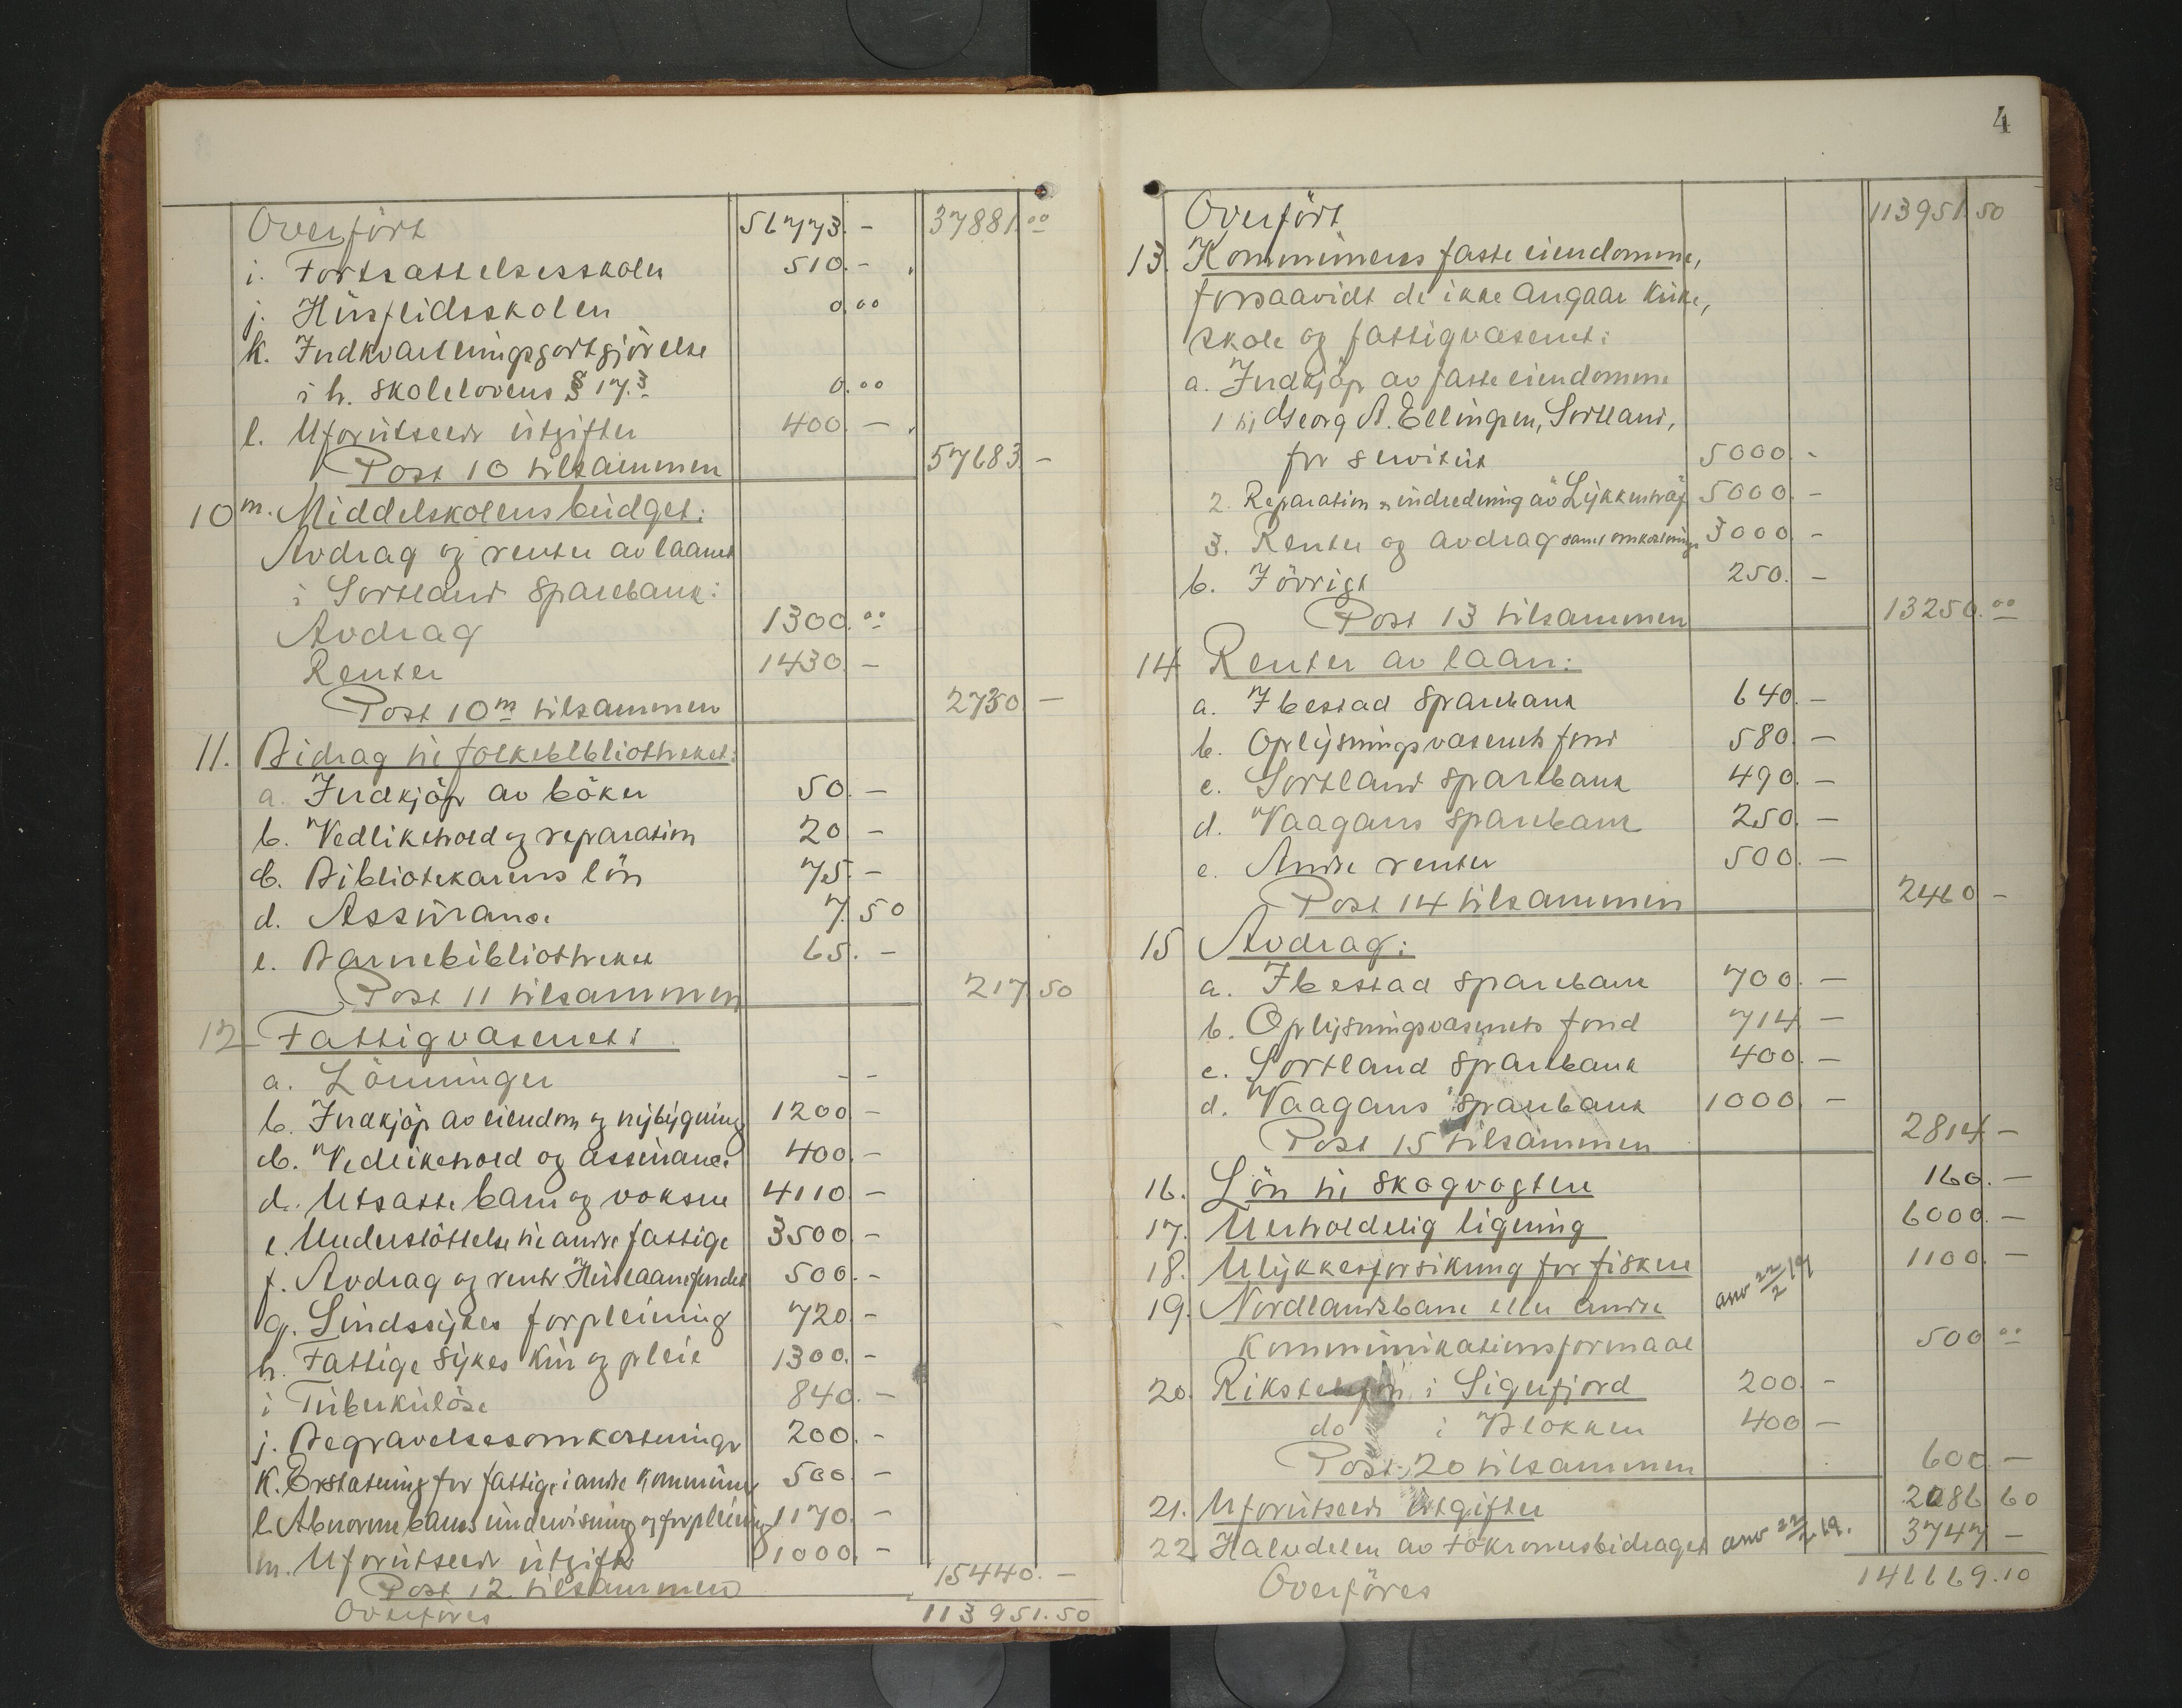 Overført 56773.- 37881.00
i. Fortsættelsesskolen 510.-
j. Husflidsskolen 0.00
k. Indkvarteringsgodtgjörelse
i h. skolelovens § 17.3 0.00
l. Uforutseede utgifter 400.-
Post 10 tilsammen 57683.-
10m. Middelskolens budget:
Avdrag og renter av laanet
i Sortland Sparebank:
Avdrag 1300.00
Renter 1430.-
Post 10m tilsammen 2730.-
11. Bidrag til folkebibliotheket:
a. Indkjöp av böker 50.-
b. Vedlikehold og reparation 20.-
c. Bibliotekarens lön 75.-
d. Assurance 7.50
e. Barnebibliotheket 65.-
Post 11 tilsammen 217.50
12 Fattigvæsenet:
a. Lönninger - -
b. Indkjöp av eiendom og nybygning 1200.-
c. Vedlikehold og assurance 400.-
d. Utsatte barn og voksne 4110.-
e. Understöttelse til andre fattige 3500.-
f. Avdrag og rente Huslaanefondet 500.-
g. Sindssykes forpleining 720.-
h. Fattige sykes kur og pleie 1300.-
i Tuberkulöse 840.-
j. Begravelsesomkostninger 200.-
k. Erstatning for fattige i andre kommuner 500.-
l. Abnorme barns undervisning og forpleining 1170.-
m. Uforutseede utgifter 1000.-
Post 12 tilsammen 15440.-
Overföres 113951.50
4
Overfört 113951.50
13. Kommunens faste eiendomme,
forsaavidt de ikke angaar kirke,
skole og fattigvæsenet:
a. Indkjöp av faste eiendomme
1 til Georg A. Ellingsen, Sortland,
for servitut 5000.-
2. Reparation og indredning av Lykkenstræf 5000.-
3. Renter og avdrag samt omkostninger 3000.-
b. Iövrigt 250.-
Post 13 tilsammen 13250.00
14 Renter av laan:
a. Ibestad Sparebank 640.-
b. Oplysningsvæsenets fond 580.-
c. Sortland Sparebank 490.-
d. Vaagans Sparebank 250.-
e. Andre renter 500.-
Post 14 tilsammen 2460.-
15 Avdrag:
a. Ibestad Sparebank 700.-
b. Oplysningsvæsenets fond 714.-
c. Sortland Sparebank 400.-
d. Vaagans Sparebank 1000.-
Post 15 tilsammen 2814.-
16. Lön til skogvogtere 160.-
17. Uerholdelig ligning 6000.-
18. Ulykkesforsikring for fiskere 1100.-
19. Nordlandsbane eller andre anv 22/2 19
kommunikationsformaal 500.00
20. Rikstelefon i Sigerfjord 200.-
do i Blokken 400.-
Post 20 tilsammen 600.-
21. Uforutseede utgifter 2086.60
22. Halvdelen av tokronersbidraget anv 22/2 19. 3747.-
Overföres 146669.10